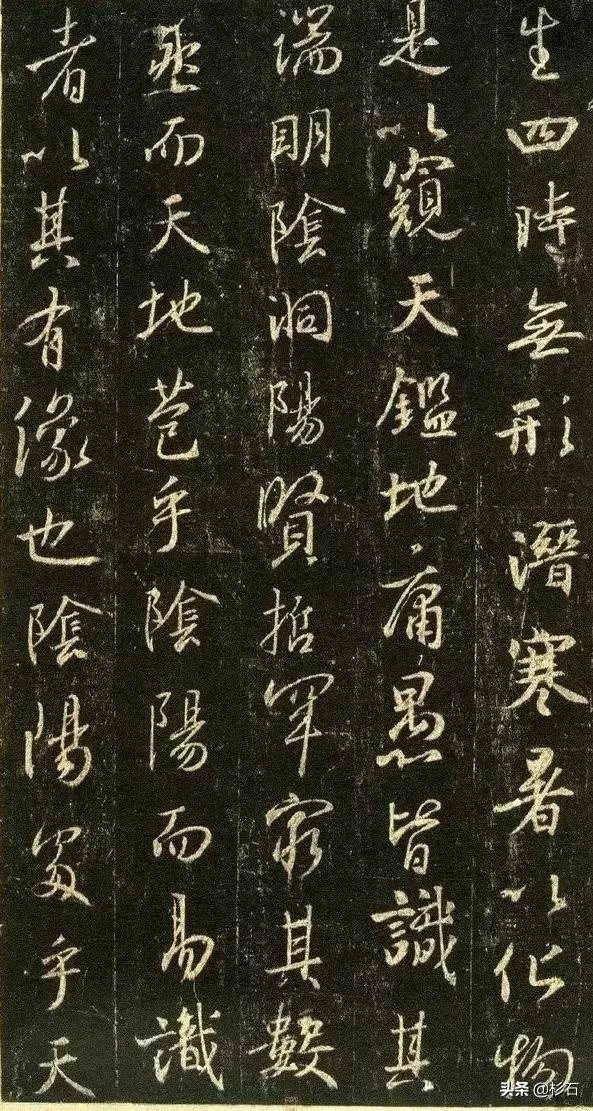 生四時無形潛寒暑以化物
是以窺天鑑地庸愚皆識其
端明陰洞陽賢哲罕窮其數
然而天地苞乎陰陽而易識
者以其有像也陰陽處乎天
头条 @杉石